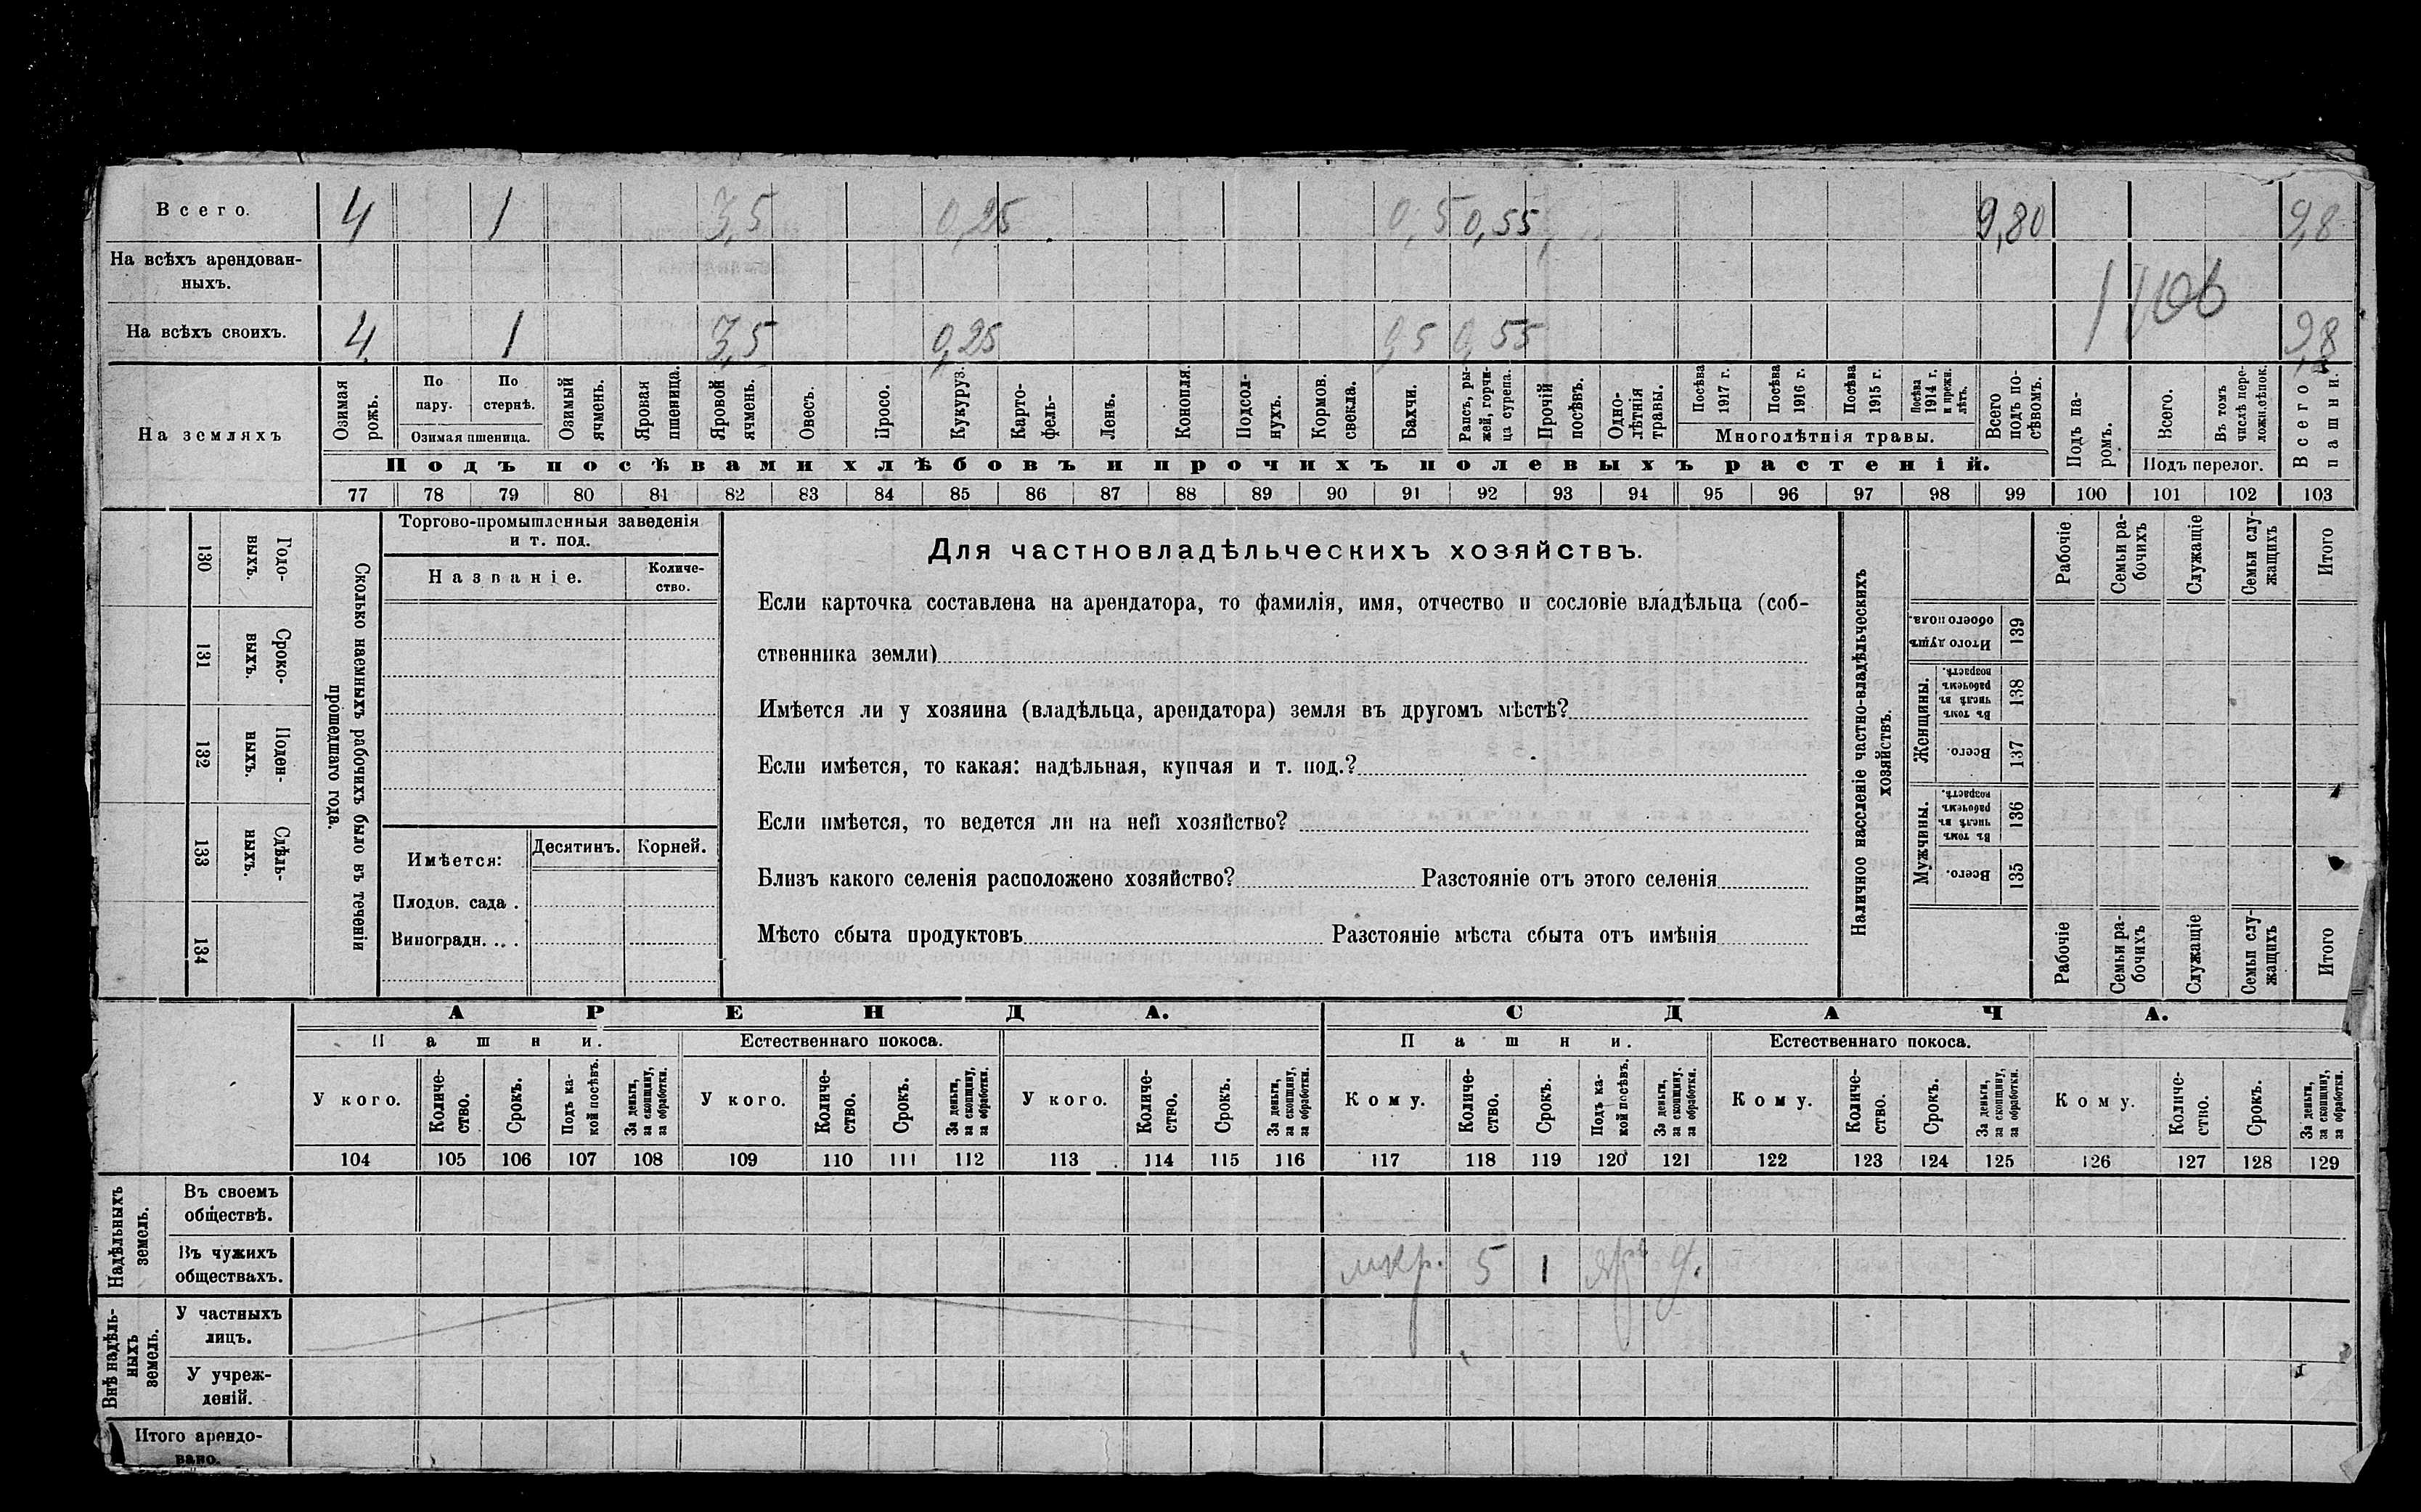 Всего. 4 1 3,5 0,25 0,5 0,55 9,80 9,8
На всѣхъ арендован-
ныхъ.
1106
На всѣхъ своихъ. 4 1 3,5 0,25 0,5 0,55 9,8
На земляхъ
Озимая рожь.
По пару.
По стернѣ.
Озимая пшеница.
Озимый ячмень.
Яровая пшеница.
Яровой ячмень.
Овесъ.
Просо.
Кукуруз.
Карто-
фель.
Ленъ.
Конопля.
Подсол-
нухъ.
Кормов. свекла.
Бахчи.
Рапсъ, ры-
жей, горчи-
ца сурепа.
Прочій посѣвъ.
Одно-
лѣтнія
травы.
Посѣва 1917 г.
Посѣва 1916 г.
Посѣва 1915 г.
Посѣва 1914 г. и прежн. лѣтъ.
Многолѣтнія травы.
Всего подъ по-
сѣвомъ.
Подъ па-
ромъ.
Всего.
Въ томъ числѣ пере-
ложн. сѣнок.
Подъ перелог.
Всего пашни.
Подъ посѣвами хлѣбовъ и прочихъ полевыхъ растеній.
77 78 79 80 81 82 83 84 85 86 87 88 89 90 91 92 93 94 95 96 97 98 99 100 101 102 103
Сколько наемныхъ рабочихъ было въ теченіи
прошедшаго года.
Годо-
выхъ.
130
Сроко-
выхъ.
131
Поден-
ныхъ.
132
Сдѣль-
ныхъ.
133
134
Торгово-промышленныя заведенія
и т. под.
Названіе.
Количе-
ство.
Имѣется:
Десятинъ. Корней.
Плодов. сада .
Виноградн. . .
Для частновладѣльческихъ хозяйствъ.
Если карточка составлена на арендатора, то фамилія, имя, отчество и сословіе владѣльца (соб-
ственника земли)
Имѣется ли у хозяина (владѣльца, арендатора) земля въ другомъ мѣстѣ?
Если имѣется, то какая: надѣльная, купчая и т. под.?
Если имѣется, то ведется ли на ней хозяйство?
Близъ какого селенія расположено хозяйство? Разстояніе отъ этого селенія
Мѣсто сбыта продуктовъ Разстояніе мѣста сбыта отъ имѣнія
Наличное населеніе частно-владѣльческихъ
хозяйствъ.
Рабочіе
Семьи ра-
бочихъ
Служащіе
Семьи слу-
жащихъ
Итого
Итого душъ обоего пола. 139
Женщины.
Въ томъ числѣ въ рабочемъ возрастѣ. 138
Всего. 137
Мужчины.
Въ томъ числѣ въ рабочемъ возрастѣ. 136
Всего. 135
Рабочіе
Семьи ра-
бочихъ
Служащіе
Семьи слу-
жащихъ
Итого
АРЕНДА. СДАЧА.
Пашни. Естественнаго покоса. Пашни. Естественнаго покоса.
У кого. Количе-
ство. Срокъ. Подъ ка-
кой посѣвъ. За деньги, за скопщину, за обработки.
У кого. Количе-
ство. Срокъ. За деньги, за скопщину, за обработки.
У кого. Количе-
ство. Срокъ. За деньги, за скопщину, за обработки.
Кому. Количе-
ство. Срокъ. Подъ ка-
кой посѣвъ. За деньги, за скопщину, за обработки.
Кому. Количе-
ство. Срокъ. За деньги, за скопщину, за обработки.
Кому. Количе-
ство. Срокъ. За деньги, за скопщину, за обработки.
104 105 106 107 108 109 110 111 112 113 114 115 116 117 118 119 120 121 122 123 124 125 126 127 128 129
Надѣльныхъ
земель.
Въ своемъ
обществѣ.
Въ чужихъ
обществахъ.
5 1 д.
Внѣ надѣль-
ныхъ
земель.
У частныхъ
лицъ.
У учреж-
деній.
Итого арендо-
вано.